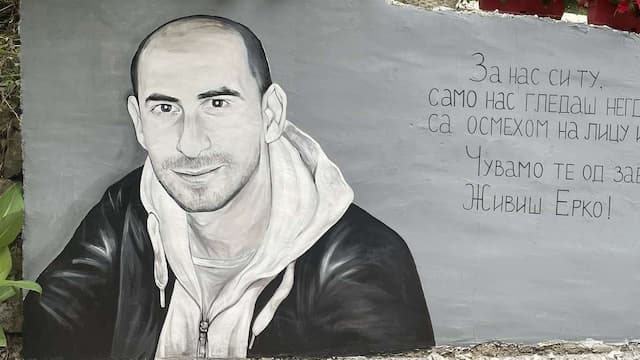 За нас си ту,
само нас гледаш
са осмехом на лицу и
Чувамо те од
Живиш Ерко!